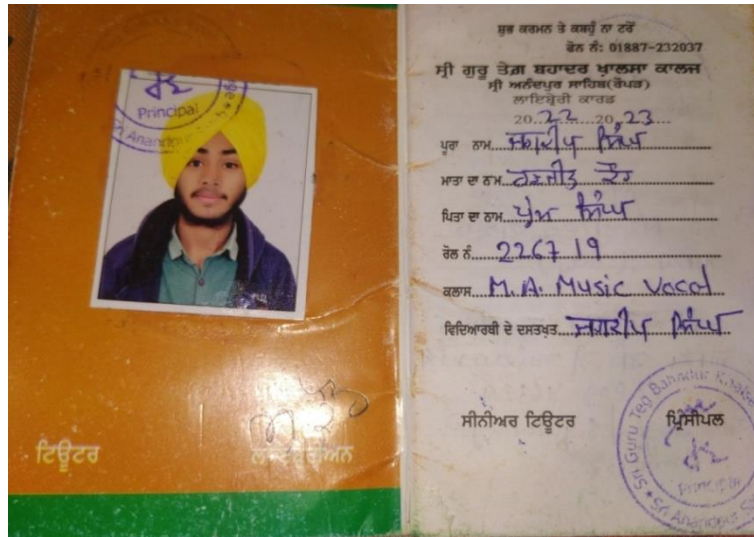 Principal
Sri Anandpur
ਟਿਊਟਰ
ਸ਼ੁਭ ਕਰਮਨ ਤੇ ਕਬਹੂੰ ਨਾ ਟਰੋਂ
ਫੋਨ ਨੰ: 01887-232037
ਸ੍ਰੀ ਗੁਰੂ ਤੇਗ਼ ਬਹਾਦਰ ਖ਼ਾਲਸਾ ਕਾਲਜ
ਸ੍ਰੀ ਅਨੰਦਪੁਰ ਸਾਹਿਬ(ਰੋਪੜ)
ਲਾਇਬ੍ਰੇਰੀ ਕਾਰਡ
2022 2023
ਪੂਰਾ ਨਾਮ ਜਗਦੀਪ ਸਿੰਘ
ਮਾਤਾ ਦਾ ਨਾਮ ਰਣਜੀਤ ਕੌਰ
ਪਿਤਾ ਦਾ ਨਾਮ ਪ੍ਰੇਮ ਸਿੰਘ
ਰੋਲ ਨੰ. 226719
ਕਲਾਸ M.A. Music Vocal
ਵਿਦਿਆਰਥੀ ਦੇ ਦਸਤਖ਼ਤ ਜਗਦੀਪ ਸਿੰਘ
ਸੀਨੀਅਰ ਟਿਊਟਰ ਪ੍ਰਿੰਸੀਪਲ
Sri Guru Teg Bahadur Khalsa
Principal
Sri Anandpur